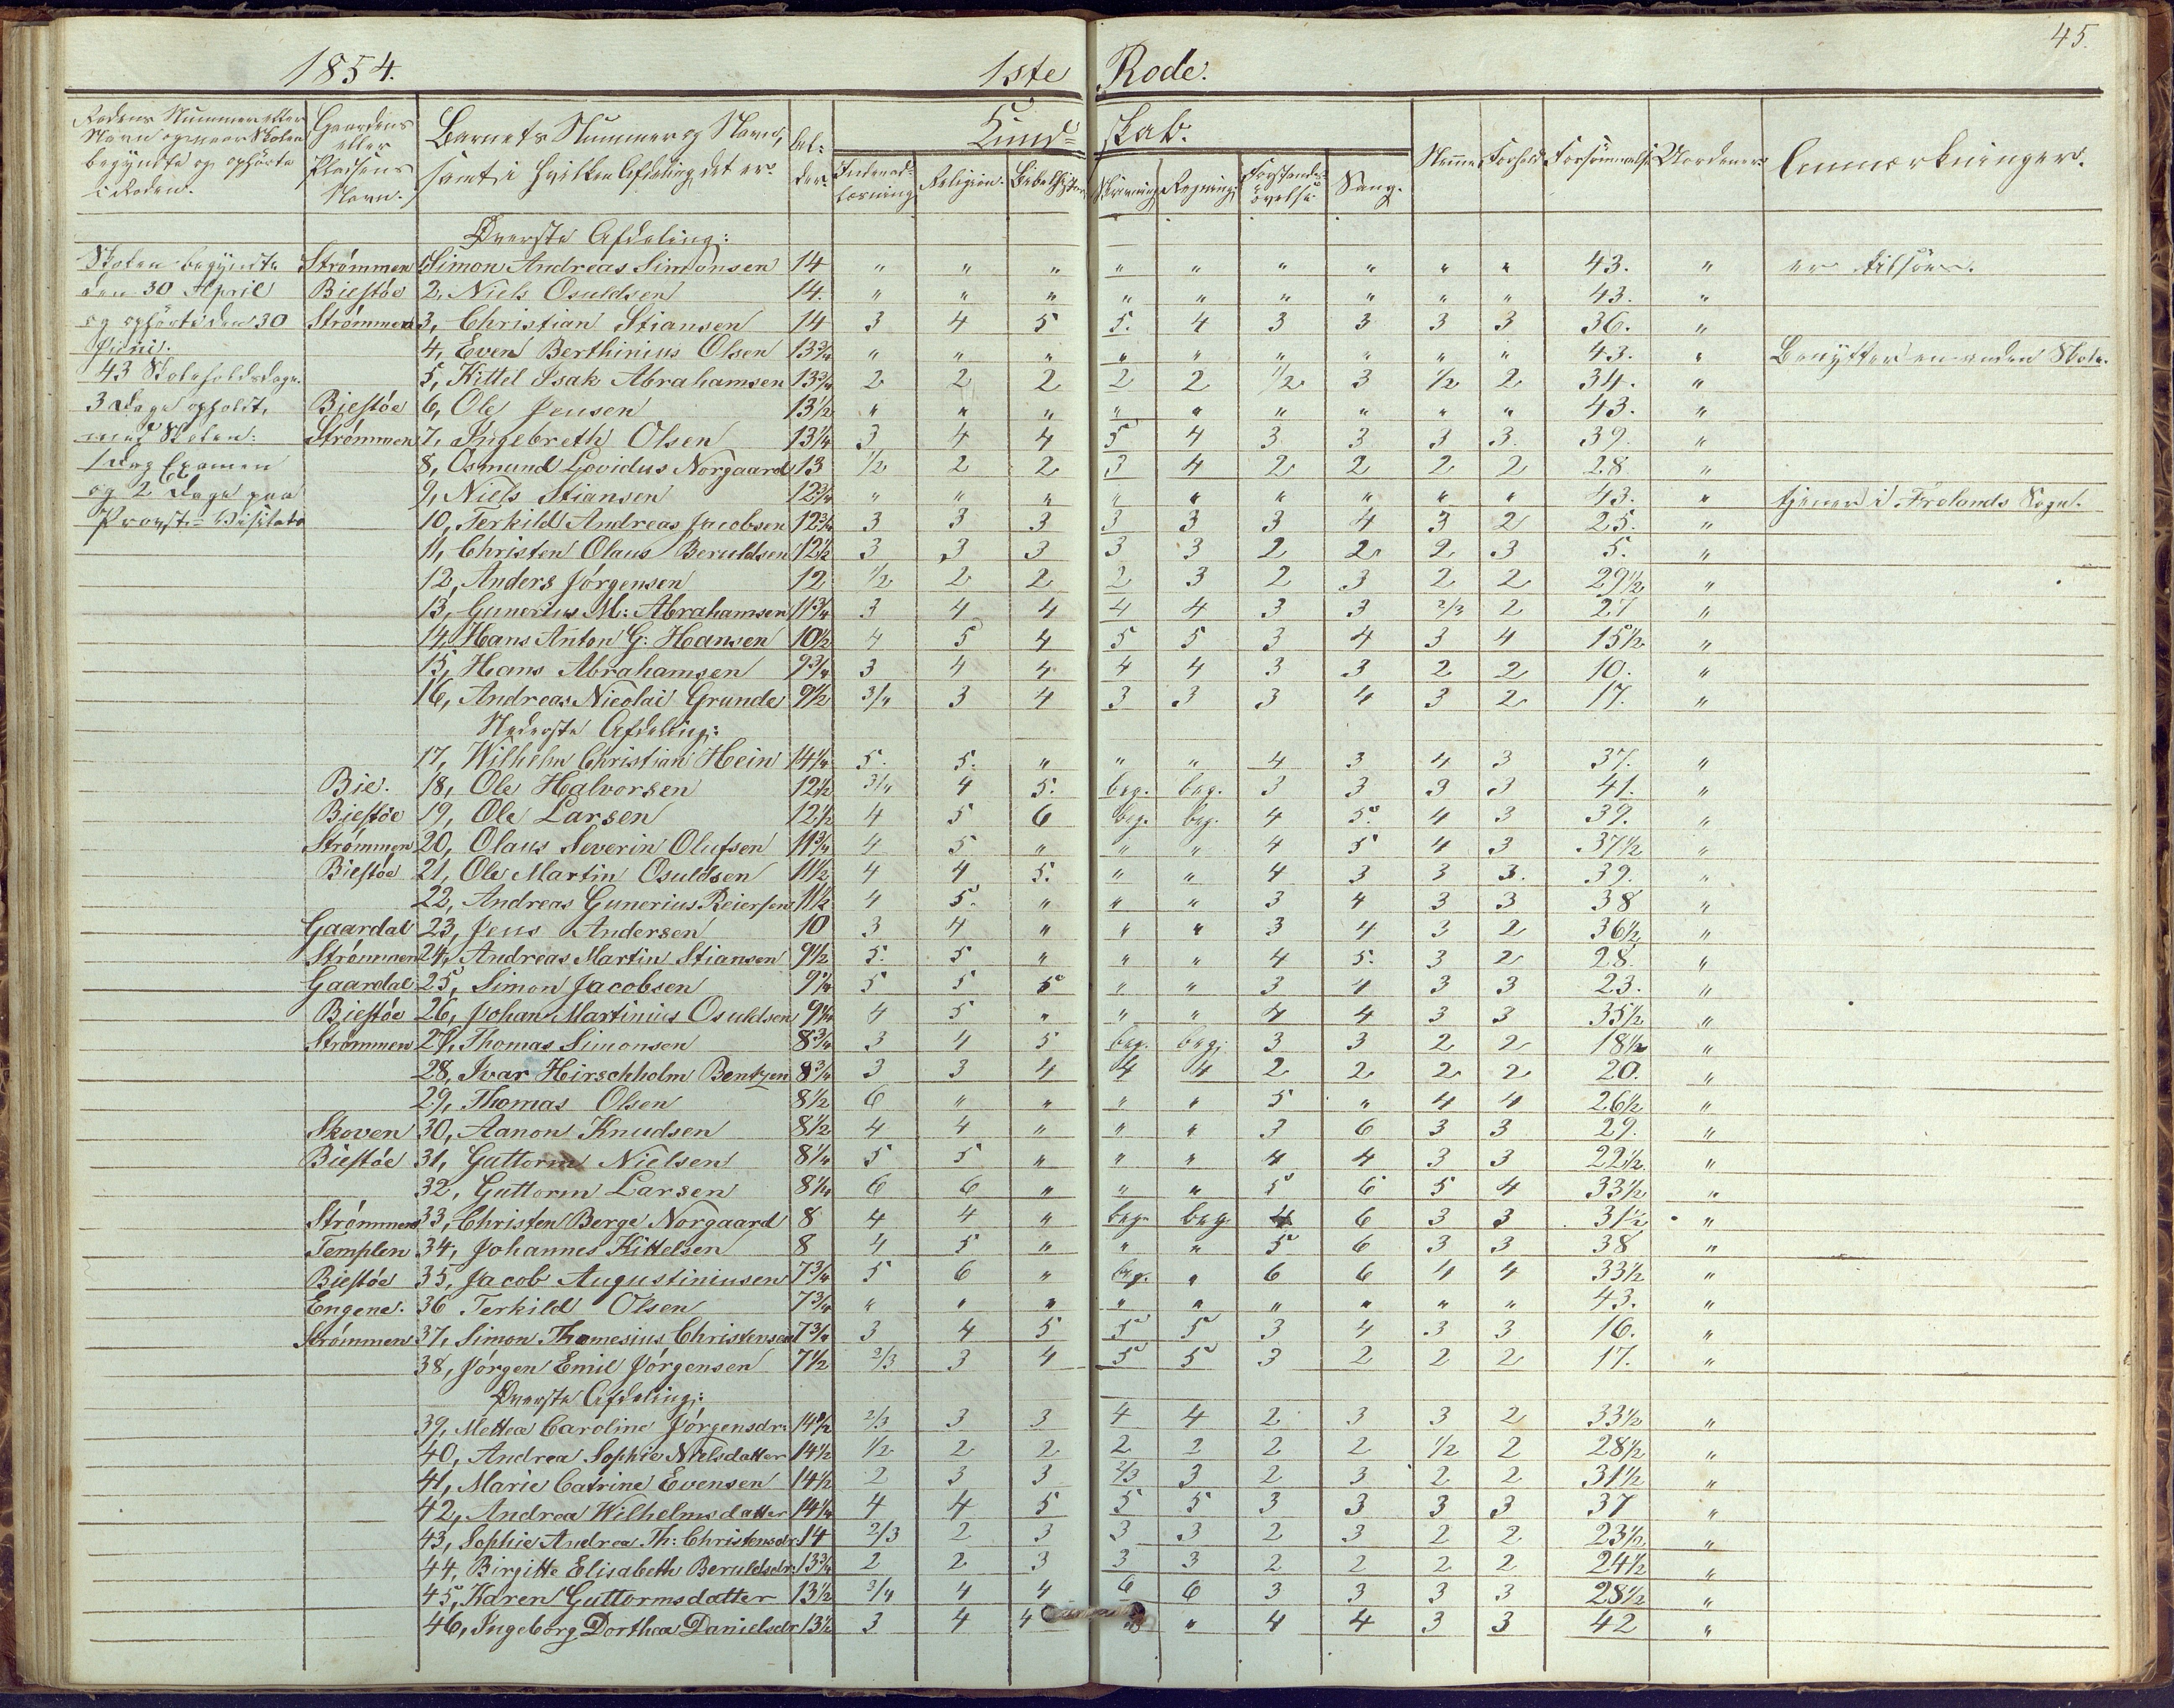 45.
1854. 1ste Rode.
Rodens Nummer eller Navn og naar Skolen begyndte og ophörte i Roden. Gaardens eller Pladsens Navn. Barnets Nummer og Navn, samt i hvilken Afdeling det er. Al-der. Kund=skab. Indenad-læsning Religion. Bibelhistorie Skrivning Regning Forstands-øvelse Sang. Nemme Forhold Forsømmelse Uordener. Anmærkninger.
Øverste Afdeling:
Skolen begyndte Strømmen 1, Simon Andreas Simonsen 14 " " " " " " " " " 43. " er tilsøes.
den 30 April Biestøe 2, Niels Osuldsen 14. " " " " " " " " " 43. "
og ophörte den 30 Strømmen 3, Christian Stiansen 14 3 4 5 5. 4 3 3 3 3 36. "
Juni. 4, Even Berthinius Olsen 13 3/4 " " " " " " " " " 43. " Benytter en anden Skole.
43 Skoleholdsdage. 5, Kittel Isak Abrahamsen 13 3/4 2 2 2 2 2 1/2 3 1/2 2 34. "
3 Dage opholdt, Biestøe 6, Ole Jensen 13 1/2 " " " " " " " " " 43. "
med Skolen: Strømmen 7, Ingebreth Olsen 13 1/4 3 4 4 5 4 3 3 3 3. 39. "
1 Dag Examen 8, Osmund Lovidus Norgaard 13 1/2 2 2 3 4 2 2 2 2 28 "
og 2 Dage paa 9, Niels Stiansen 12 3/4 " " " " " " " " " 43. " tjener i Frolands Sogn.
Provste=Visitats 10, Terkild Andreas Jacobsen 12 3/4 3 3 3 3 3 3 4 3 2 25. "
11, Christen Olaus Beruldsen 12 1/2 3 3 3 3 3 2 2 2 3 5. "
12, Anders Jørgensen 12 1/2 2 2 2 3 2 3 2 2 29 1/2 "
13, Gunerius M: Abrahamsen 11 3/4 3 4 4 4 4 3 3 2/3 2 27 "
14, Hans Anton G: Hansen 10 1/2 4 5 4 5 5 3 4 3 4 15 1/2 "
15, Hans Abrahamsen 9 3/4 3 4 4 4 4 3 3 2 2 10. "
16, Andreas Nicolai Grunde 9 1/2 3/4 3 4 3 3 3 4 3 2 17. "
Nederste Afdeling:
17, Wilhelm Christian Hein 14 1/4 5. 5. " " " 4 3 4 3 37. "
Bie. 18, Ole Halvorsen 12 1/2 3/4 4 5. beg. beg. 3 3 3 3 41. "
Biestøe 19, Ole Larsen 12 1/2 4 5 6 beg. beg. 4 5. 4 3 39. "
Strømmen 20, Olaus Severin Olufsen 11 3/4 4 5 " " " 4 5 4 3 37 1/2 "
Biestøe 21, Ole Martin Osuldsen 11 1/2 4 4 5. " " 4 3 3 3. 39. "
22, Andreas Gunerius Reiersen 11 1/2 4 5. " " " 3 4 3 3 38 "
Gaardal 23, Jens Andersen 10 3 4 " " " 3 4 3 2 36 1/2 "
Strømmen 24, Andreas Martin Stiansen 9 1/2 5. 5 " " " 4 5. 3 2 28 "
Gaardal 25, Simon Jacobsen 9 1/4 5 5 5 " " 3 4 3 3 23. "
Biestøe 26, Johan Martinius Osuldsen 9 1/4 4 5 " " " 4 4 3 3 35 1/2 "
Strømmen 27, Thomas Simonsen 8 3/4 3 4 5 beg. beg. 3 3 2 2 18 1/2 "
28, Ivar Hirschholm Bentzen 8 3/4 3 3 4 4 4 2 2 2 2 20. "
29, Thomas Olsen 8 1/2 6 " " " " 5 " 4 4 26 1/2 "
Skoven 30, Aanon Knudsen 8 1/2 4 4 " " " 3 6 3 3 29. "
Biestøe 31, Guttorm Nielsen 8 1/4 5 5 " " " 4 4 3 3 22 1/2 "
32, Guttorm Larsen 8 1/4 6 6 " " " 5 6 5 4 33 1/2 "
Strømmen 33, Christen Berge Norgaard 8 4 4 " beg. beg. 4 6 3 3 31 1/2 "
Templen 34, Johannes Kittelsen 8 4 5 " " " 5 6 3 3 38 "
Biestøe 35, Jacob Augustiniusen 7 3/4 5 6 " beg. " 6 6 4 4 33 1/2 "
Engene. 36 Terkild Olsen 7 3/4 " " " " " " " " " 43. "
Strømmen 37, Simon Thomesius Christensen 7 3/4 3 4 5 5 5 3 4 3 3 16. "
38, Jørgen Emil Jørgensen 7 1/2 2/3 3 4 5 5 3 2 2 2 17. "
Øverste Afdeling:
39, Mettea Caroline Jørgensdr: 14 2/3 3 3 4 4 2 3 3 2 33 1/2 "
40, Andrea Sophie Nielsdatter 14 1/2 1/2 2 2 2 2 2 2 1/2 2 28 1/2 "
41, Marie Catrine Evensen 14 1/2 2 3 3 2/3 3 2 3 2 2 31 1/2 "
42, Andrea Wilhelmsdatter 14 1/4 4 4 5 5 5 3 3 3 3 37 "
43, Sophie Andrea Th: Christensdr. 14 2/3 2 3 3 3 2 3 2 2 23 1/2 "
44, Birgitte Elisabeth Beruldsdr. 13 3/4 2 2 3 3 3 2 2 2 2 24 1/2 "
45, Karen Guttormsdatter 13 1/2 3/4 4 4 6 6 3 3 3 3 28 1/2 "
46, Ingeborg Dorthea Danielsdr 13 1/2 3 4 4 " 4 4 3 3 42 "